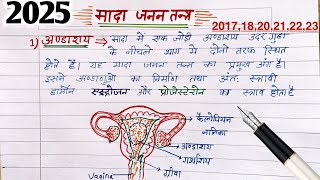 2025
मादा जनन तन्त्र
2017,18,20,21,22,23
1) अण्डाशय → मादा में एक जोड़ी अण्डाशय उदर गुहा
के नीचले भाग में दोनो तरफ स्थित
होते हैं। यह मादा जनन तन्त्र का प्रमुख अंग है।
इसमें अण्डाणुओं का निर्माण तथा अंतः स्त्रावी
हार्मोन एस्ट्रोजन और प्रोजेस्टेरोन का स्त्राव होता है
फैलोपियन
नलिका
अण्डाशय
गर्भाशय
ग्रीवा
Vagina